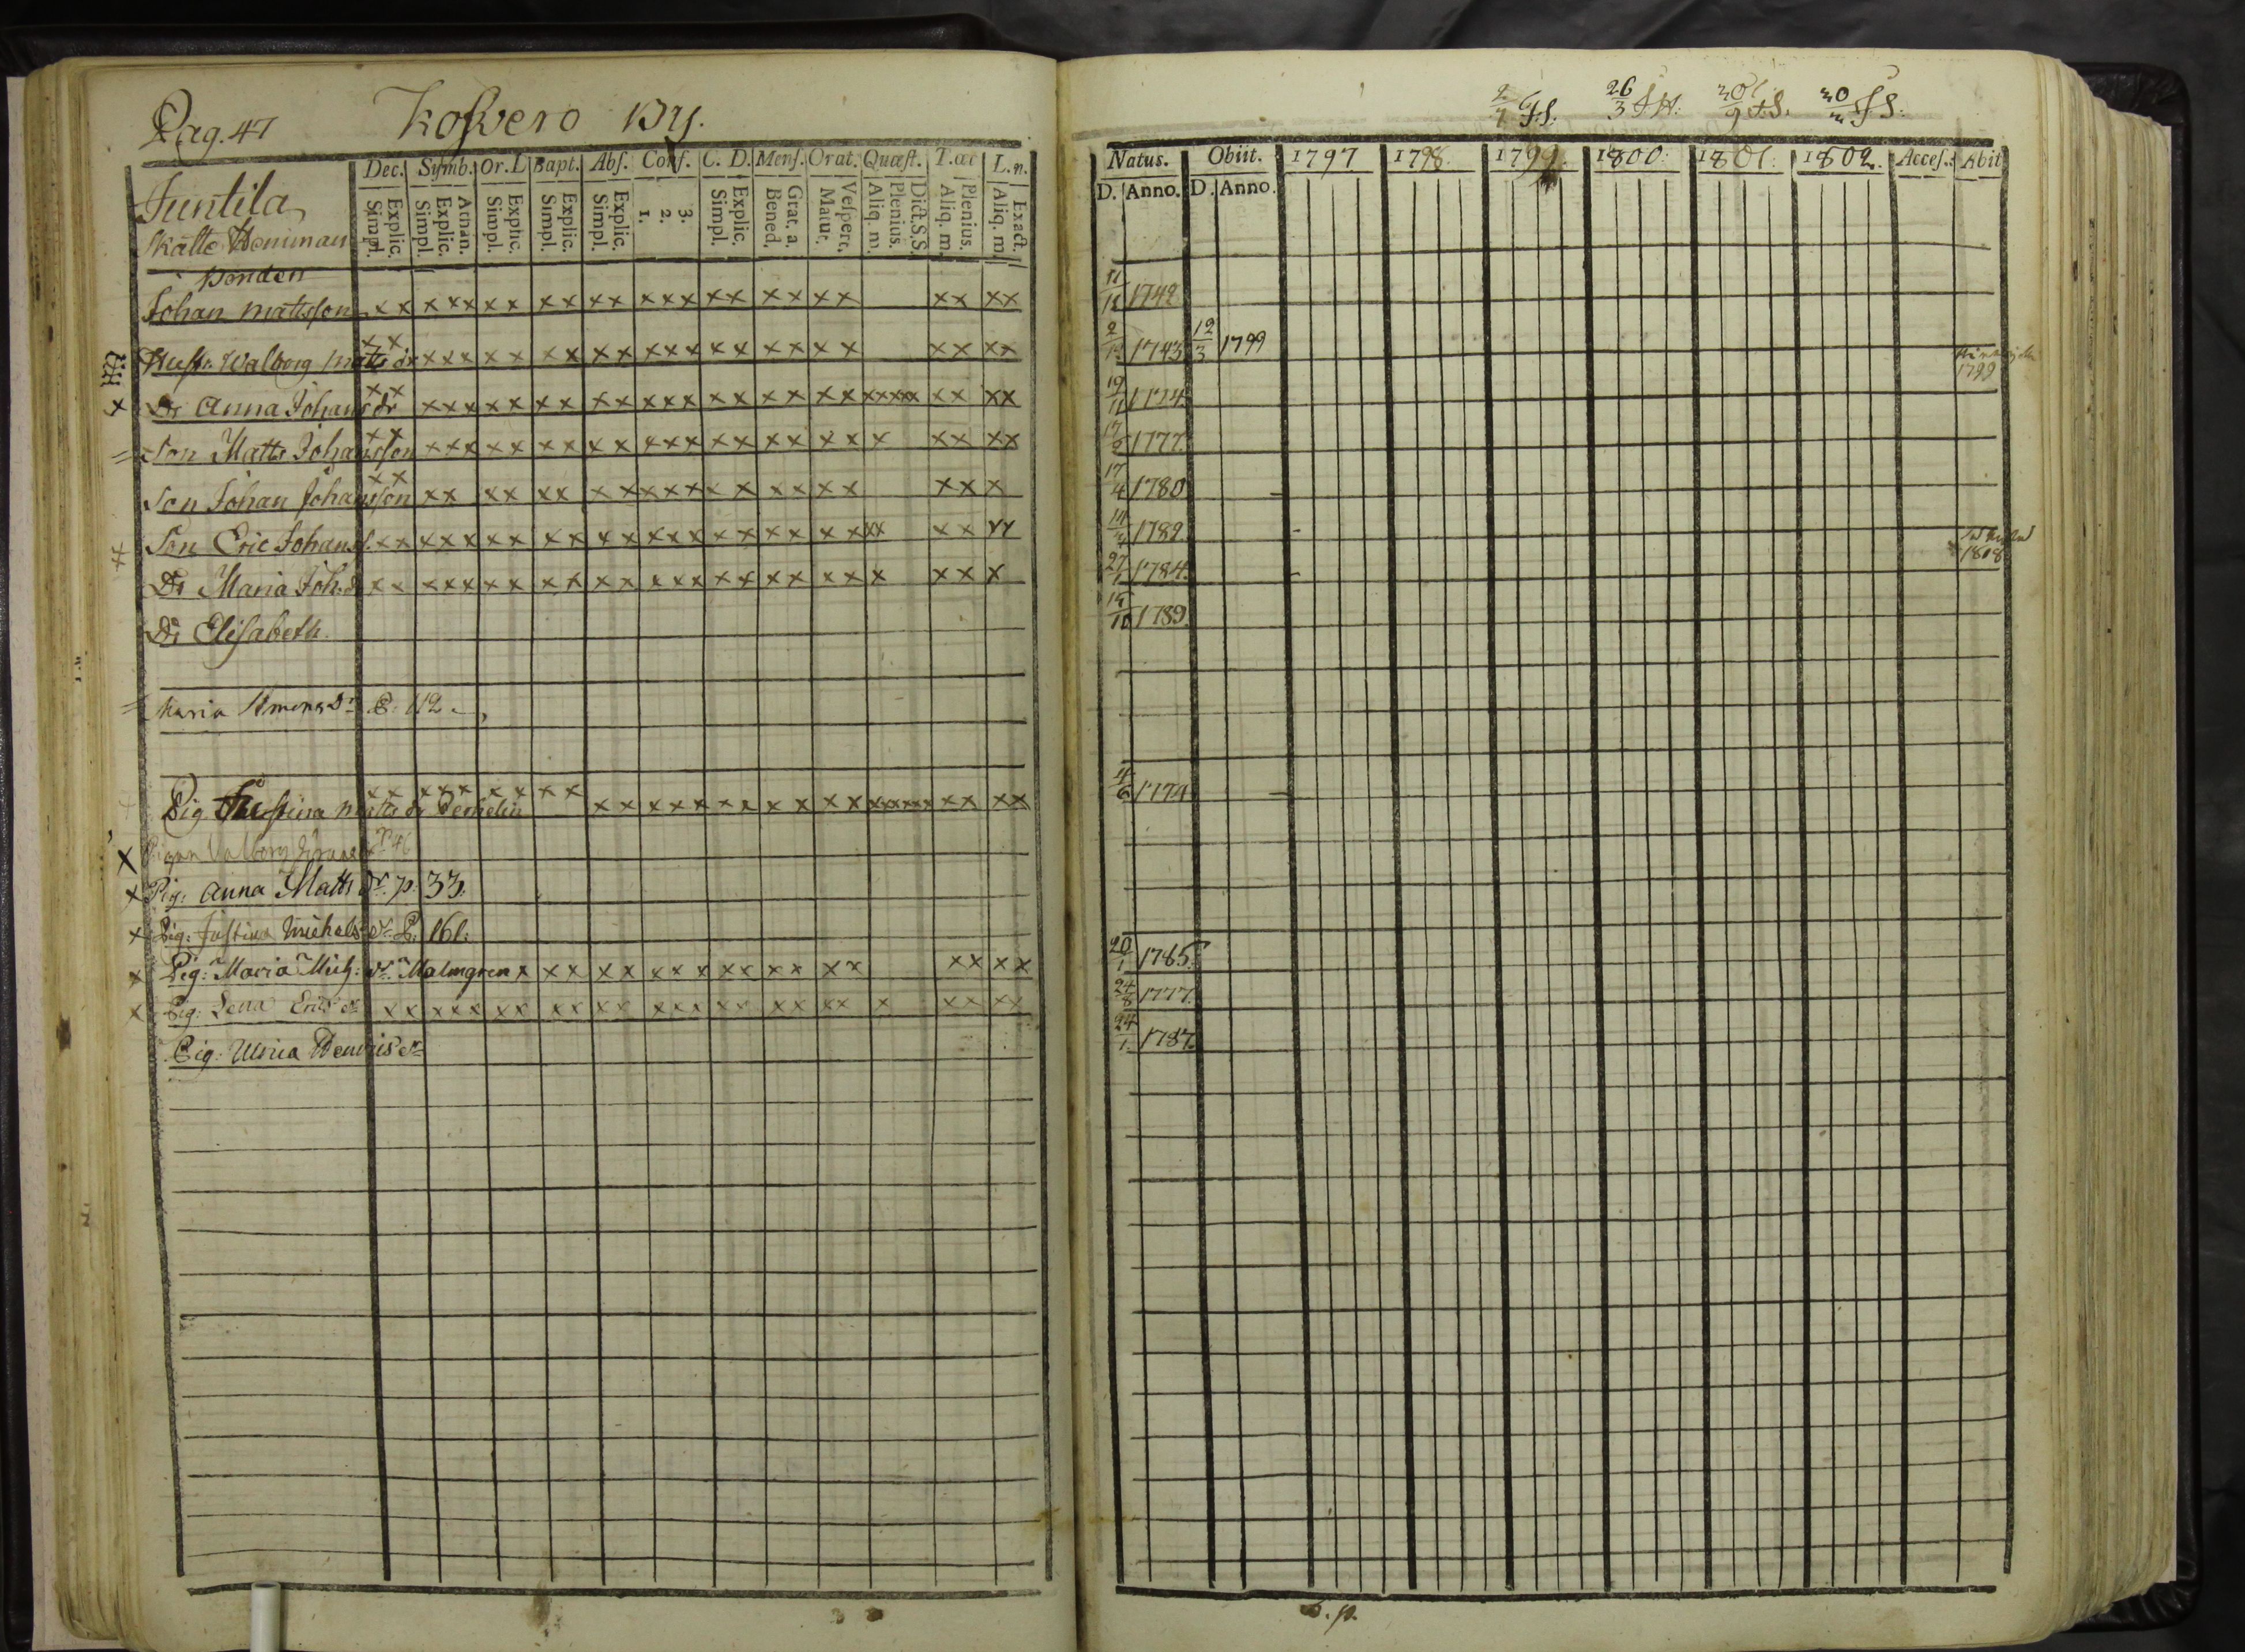 Pag. 47 Koſvero By.
Dec. Symb. Or. L. Bapt. Abſ. Conf. C. D. Menſ. Orat. Quæſt. T. æt L. n.
Explic. Simpl. Athan. Explic. Simpl. Explic. Simpl. Explic. Simpl. Explic. Simpl. 3. 2. 1. Explic. Simpl. Grat. a. Bened. Veſpert. Matut. Dict. S. S. Plenius. Aliq. m. Plenius. Aliq. m. Exact. Aliq. m.
Juntila
Skatte Hemman
Bonden
Johan Mattsson xx xxx xx xx xx xxx xx xx xx xx xx
Hustr. Walborg Matts dr xx xxx xx xx xx xxx xx xx xx xx xx
x Dr Anna Johans dr xx xxx xx xx xx xxx xx xx xx xxxxx xx xx
= Son Matts Johansson xx xxx xx xx xx xxx xx xx xx x xx xx
Son Johan Johansson xx xx xx xx xx xxx xx xx xx xx x
Son Eric Johanss. xx xxx xx xx xx xxx xx xx xx xx xx xx
Dr Maria Joh. d xx xxx xx xx xx xxx xx xx xx x xx x
Dr Elisabeth.
= Maria Simons Dr P. 112.
Pig. Justina Matts dr xx xxx xx xx xx xxx xx xx xx xxxxx xx xx
x Pigan Valborg P 46
x Pig: Anna Matts dr. p. 33.
x Pig: Justina Michels dr. P. 161.
x Pig: Maria Mich: dr. Malmgren x xx xx xxx xx xx xx xx xx
x Pig: Lena Erics dr xx xxx xx xx xx xxx xx xx xx x xx xx
Pig: Ulrica Henrics dr
26/3 20/9
Natus. Obiit. 1797 1798. 1799. 1800. 1801. 1802. Acceſ. Abit
D. Anno. D. Anno.
1742
1743 12/3 1799
1799
19/11 1774
1777.
17/4 1780
1782.
1808
27/1 1784.
15/10 1789.
4/6 1774
20/1 1765.
24/8 1777.
24/1 1787.